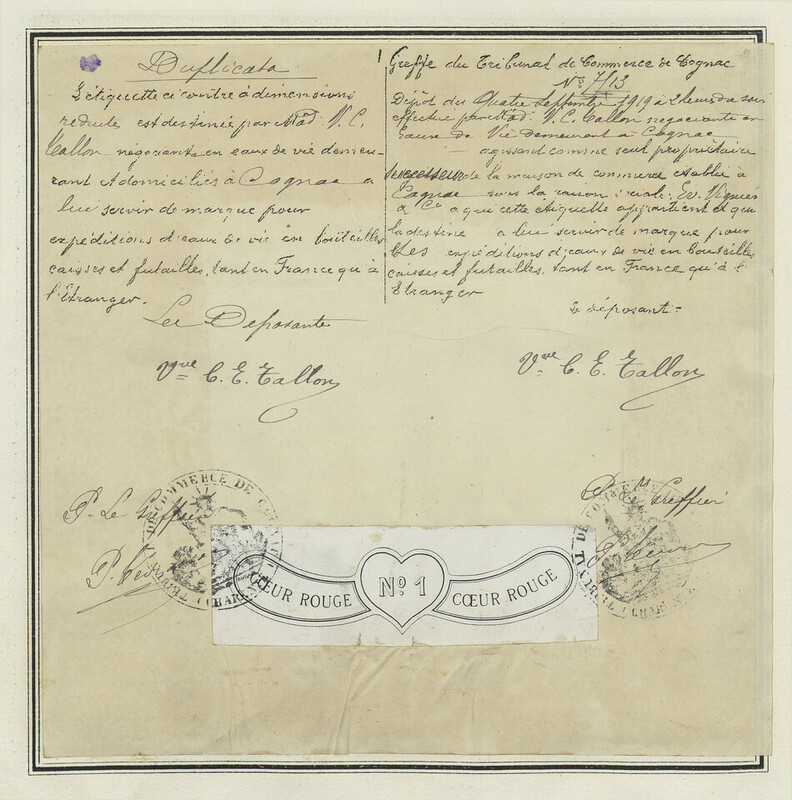 Duplicata
L'étiquette ci contre à dimensions
réduite est destinée par Mad. V. C.
Tallon négociante en eaux de vie demeu-
rant & domiciliés à Cognac a
lui servir de marque pour
expéditions d'eaux de vie en bouteilles
caisses et futailles, tant en France qu'à
l'Etranger.
Les Deposante
Vve C. E. Tallon
P. Le Greffier
Greffe du Tribunal de Commerce de Cognac
No 7/13
Dépôt des Quatre Septembre 1919 à 2 heures du soir
effectué par Mad. V. C. Tallon négociante en
Eaux de Vie demeurant à Cognac
agissant comme seul propriétaire
successeur de la maison de commerce établie à
Cognac sous la raison sociale: Ed. Viguier
& Cie a qui cette étiquette appartient et qui
la destine a lui servir de marque pour
les expéditions d'eaux de vie en bouteilles
caisses et futailles, tant en France qu'à l'
Etranger
Le déposant =
Vve C. E. Tallon
P. Le Greffier
TRIBUNAL DE COMMERCE DE COGNAC (CHARENTE)
CŒUR ROUGE No. 1 CŒUR ROUGE
TRIBUNAL DE COMMERCE DE (CHARENTE)